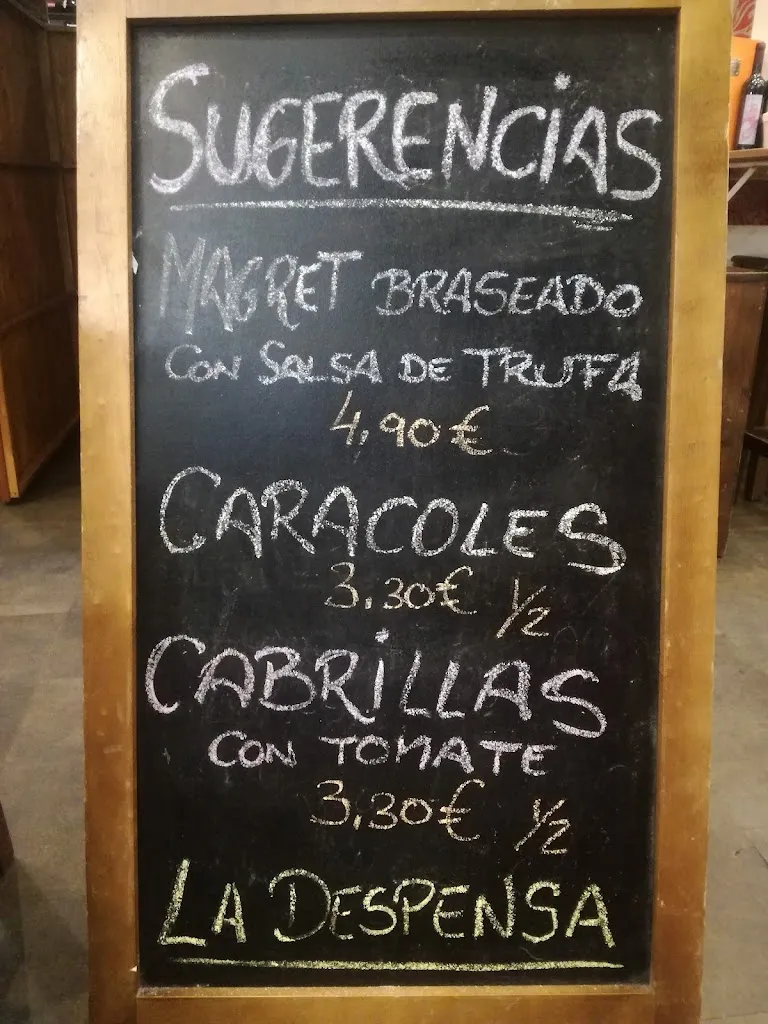 SUGERENCIAS
MAGRET BRASEADO
CON SALSA DE TRUFA
4,90€
CARACOLES
3,30€ 1/2
CABRILLAS
CON TOMATE
3,30€ 1/2
LA DESPENSA